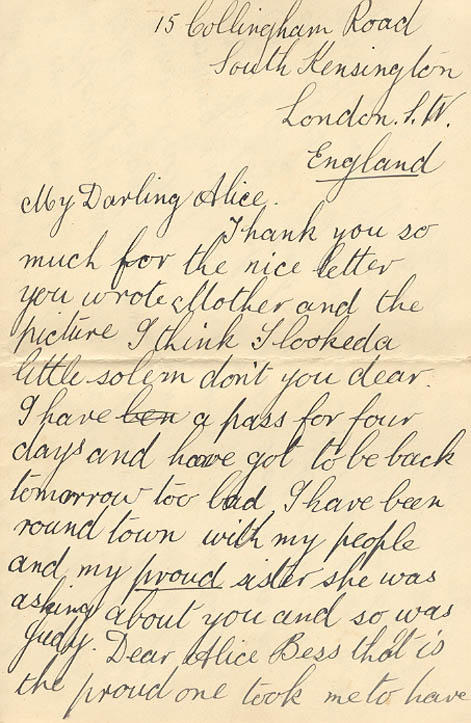 15 Collingham Road
South Kensington
London. S.W.
England
My Darling Alice.
Thank you so
much for the nice letter
you wrote Mother and the
picture I think I looked a
little solem don't you dear.
I have ben a pass for four
days and have got to be back
tomorrow too bad, I have been
round town with my people
and my proud sister she was
asking about you and so was
Judy. Dear Alice Bess that is
the proud one took me to have